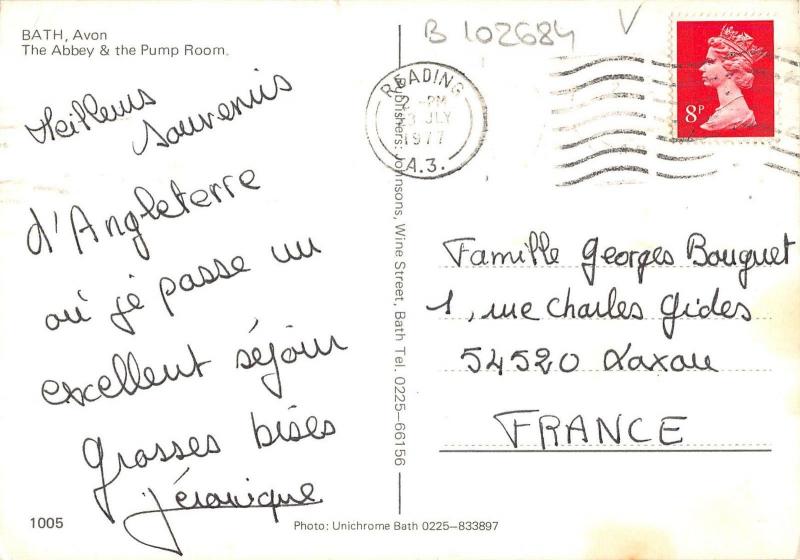 BATH, Avon
The Abbey & the Pump Room.
Meilleurs
souvenirs
d'Angleterre
où je passe un
excellent séjour
grosses bises
Véronique
1005
Publishers: Johnsons, Wine Street, Bath Tel. 0225-66156
Photo: Unichrome Bath 0225-833897
B 102684
V
READING
2 -PM
JLY
1977
A.3.
8P
Famille Georges Bouquet
1, rue Charles Gides
54520 Laxou
FRANCE